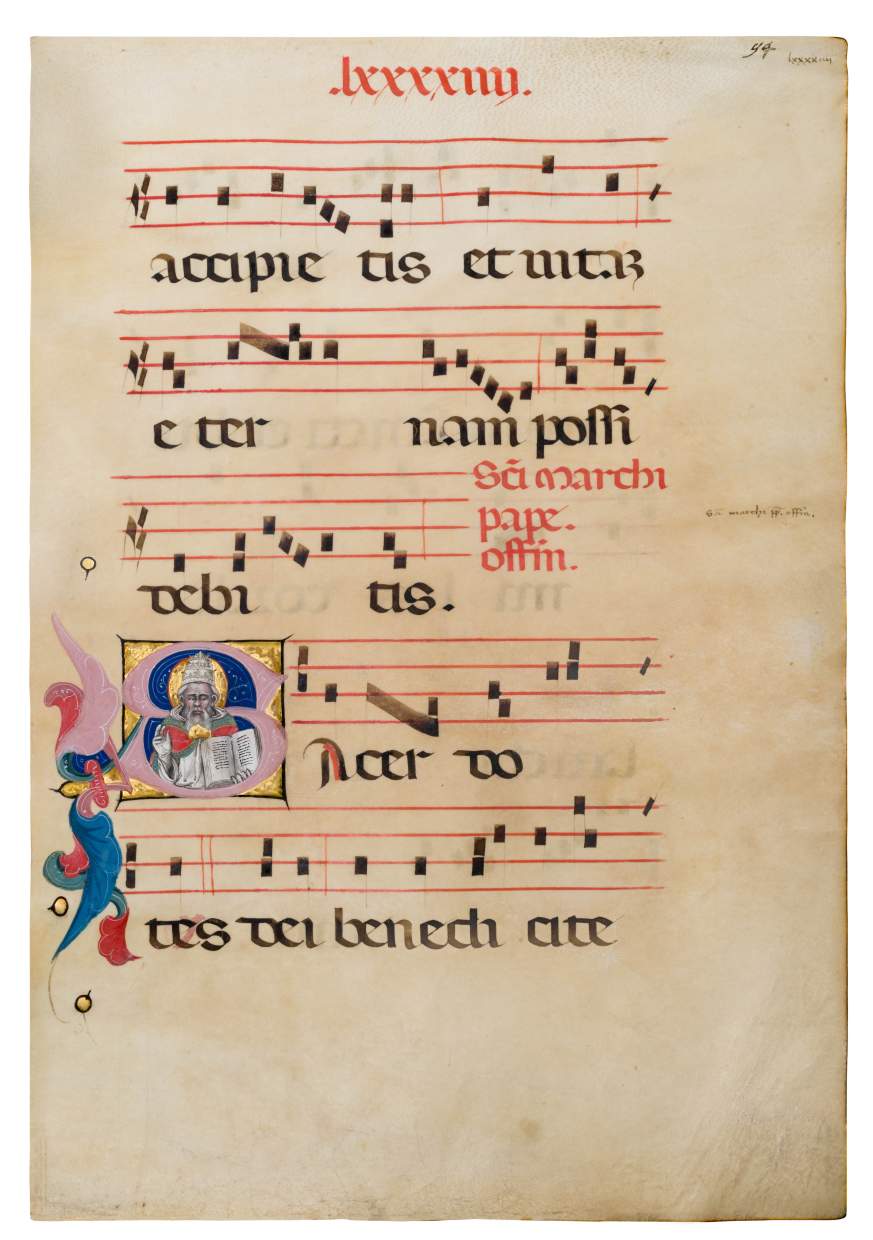 .lxxxxiiij.
94
lxxxxiiij
accipie tis et uitaʒ
e ter nam possi
Sc̄i marchi
pape.
offin̄.
Sc̄i marchi pp̄. offin̄.
debi tis.
SAcer do
tes dei benedi cite